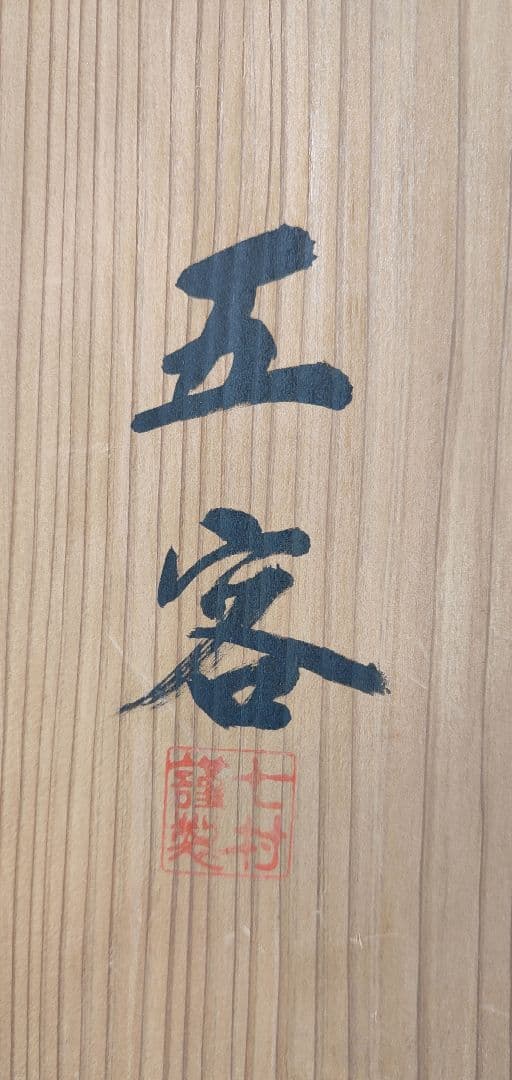 五客
七村
謹製